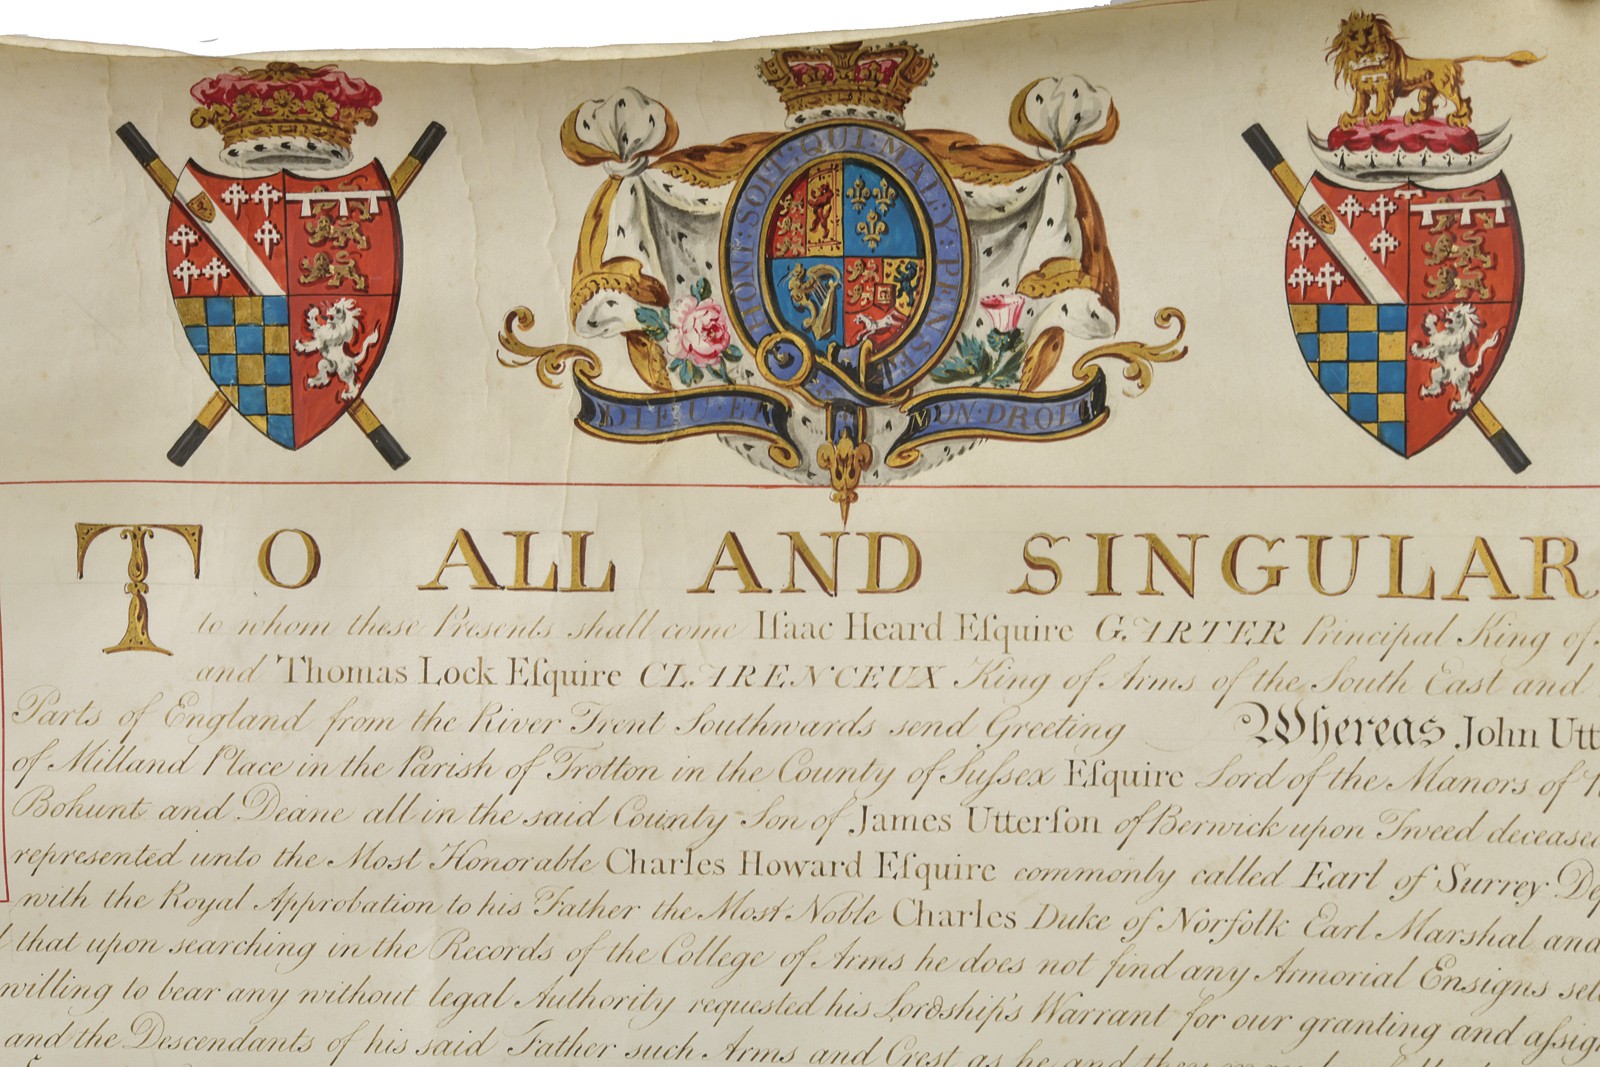 HONI·SOIT·QUI·MAL·Y·PENSE
DIEU·ET MON·DROIT
TO ALL AND SINGULAR
to whom these Presents shall come Iſaac Heard Eſquire GARTER Principal King of
and Thomas Lock Eſquire CLARENCEUX King of Arms of the South East and
Parts of England from the River Trent Southwards send Greeting Whereas John Utt
of Milland Place in the Parish of Trotton in the County of Suſsex Eſquire Lord of the Manors of
Bohunt and Deane all in the said County Son of James Utterſon of Berwick upon Tweed deceased
represented unto the Most Honorable Charles Howard Eſquire commonly called Earl of Surrey Dep
with the Royal Approbation to his Father the Most Noble Charles Duke of Norfolk Earl Marshal and
that upon searching in the Records of the College of Arms he does not find any Armorial Ensigns
willing to bear any without legal Authority requested his Lordship's Warrant for our granting and aſsig
and the Descendants of his said Father such Arms and Crest as he and they may